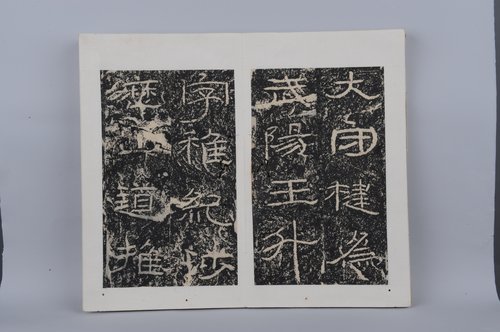 大守楗為
武陽王升
字稚紀涉
歷山道推